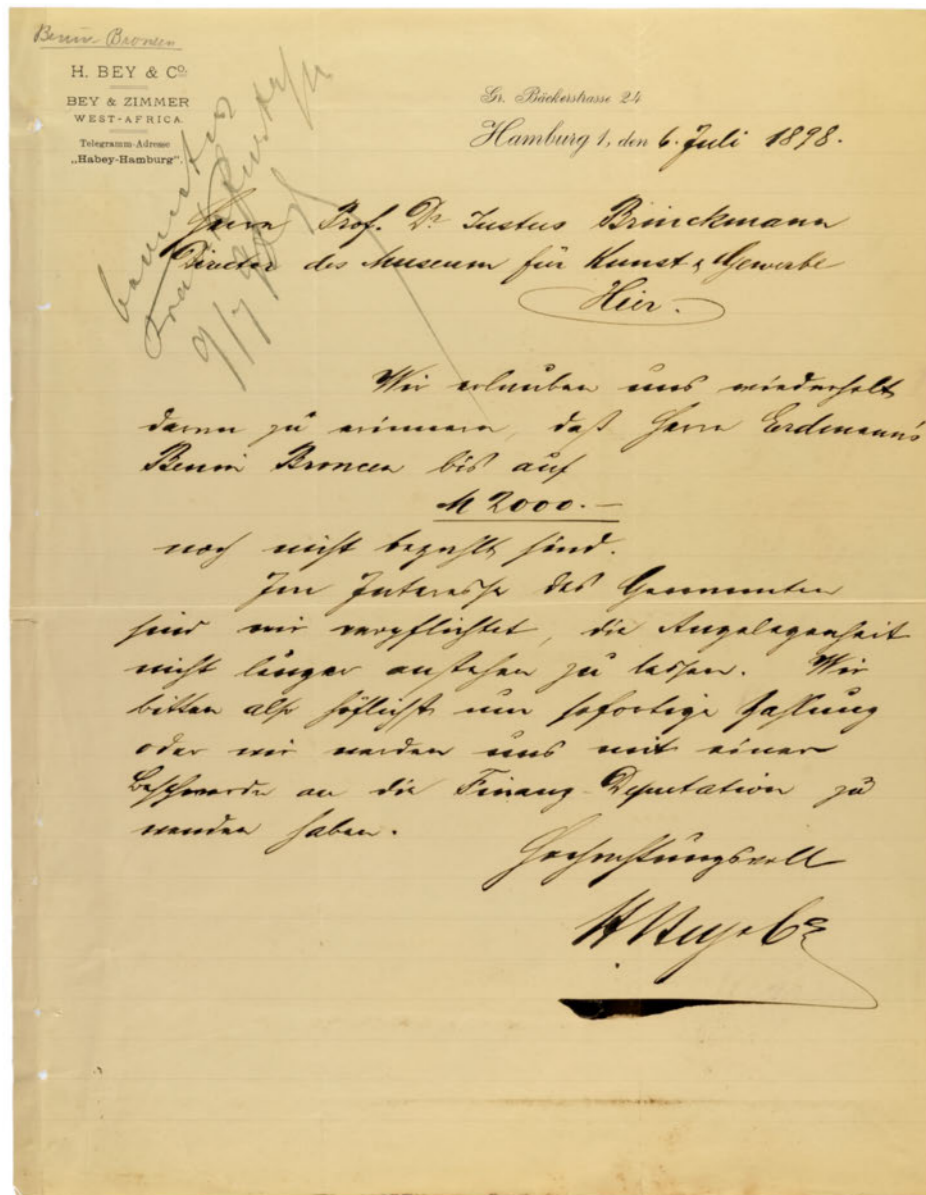 Benin-Broncen
H. BEY & Co.
BEY & ZIMMER
WEST-AFRICA.
Telegramm-Adresse
„Habey-Hamburg“.
Gr. Bäckerstrasse 24
Hamburg 1, den 6. Juli 1898.
Herrn Prof. Dr Justus Brinckmann
Director des Museum für Kunst & Gewerbe
Hier.
9/7 98
Wir erlauben uns wiederholt
daran zu erinnern, daß Herrn Erdmann's
Benin Broncen bis auf
M 2000.-
noch nicht bezahlt sind.
Im Interesse des Genannten
sind wir verpflichtet, die Angelegenheit
nicht länger anstehen zu lassen. Wir
bitten also höflichst um sofortige Zahlung
oder wir werden uns mit einer
Beschwerde an die Finanz-Deputation zu
wenden haben.
Hochachtungsvoll
H. Bey & Co